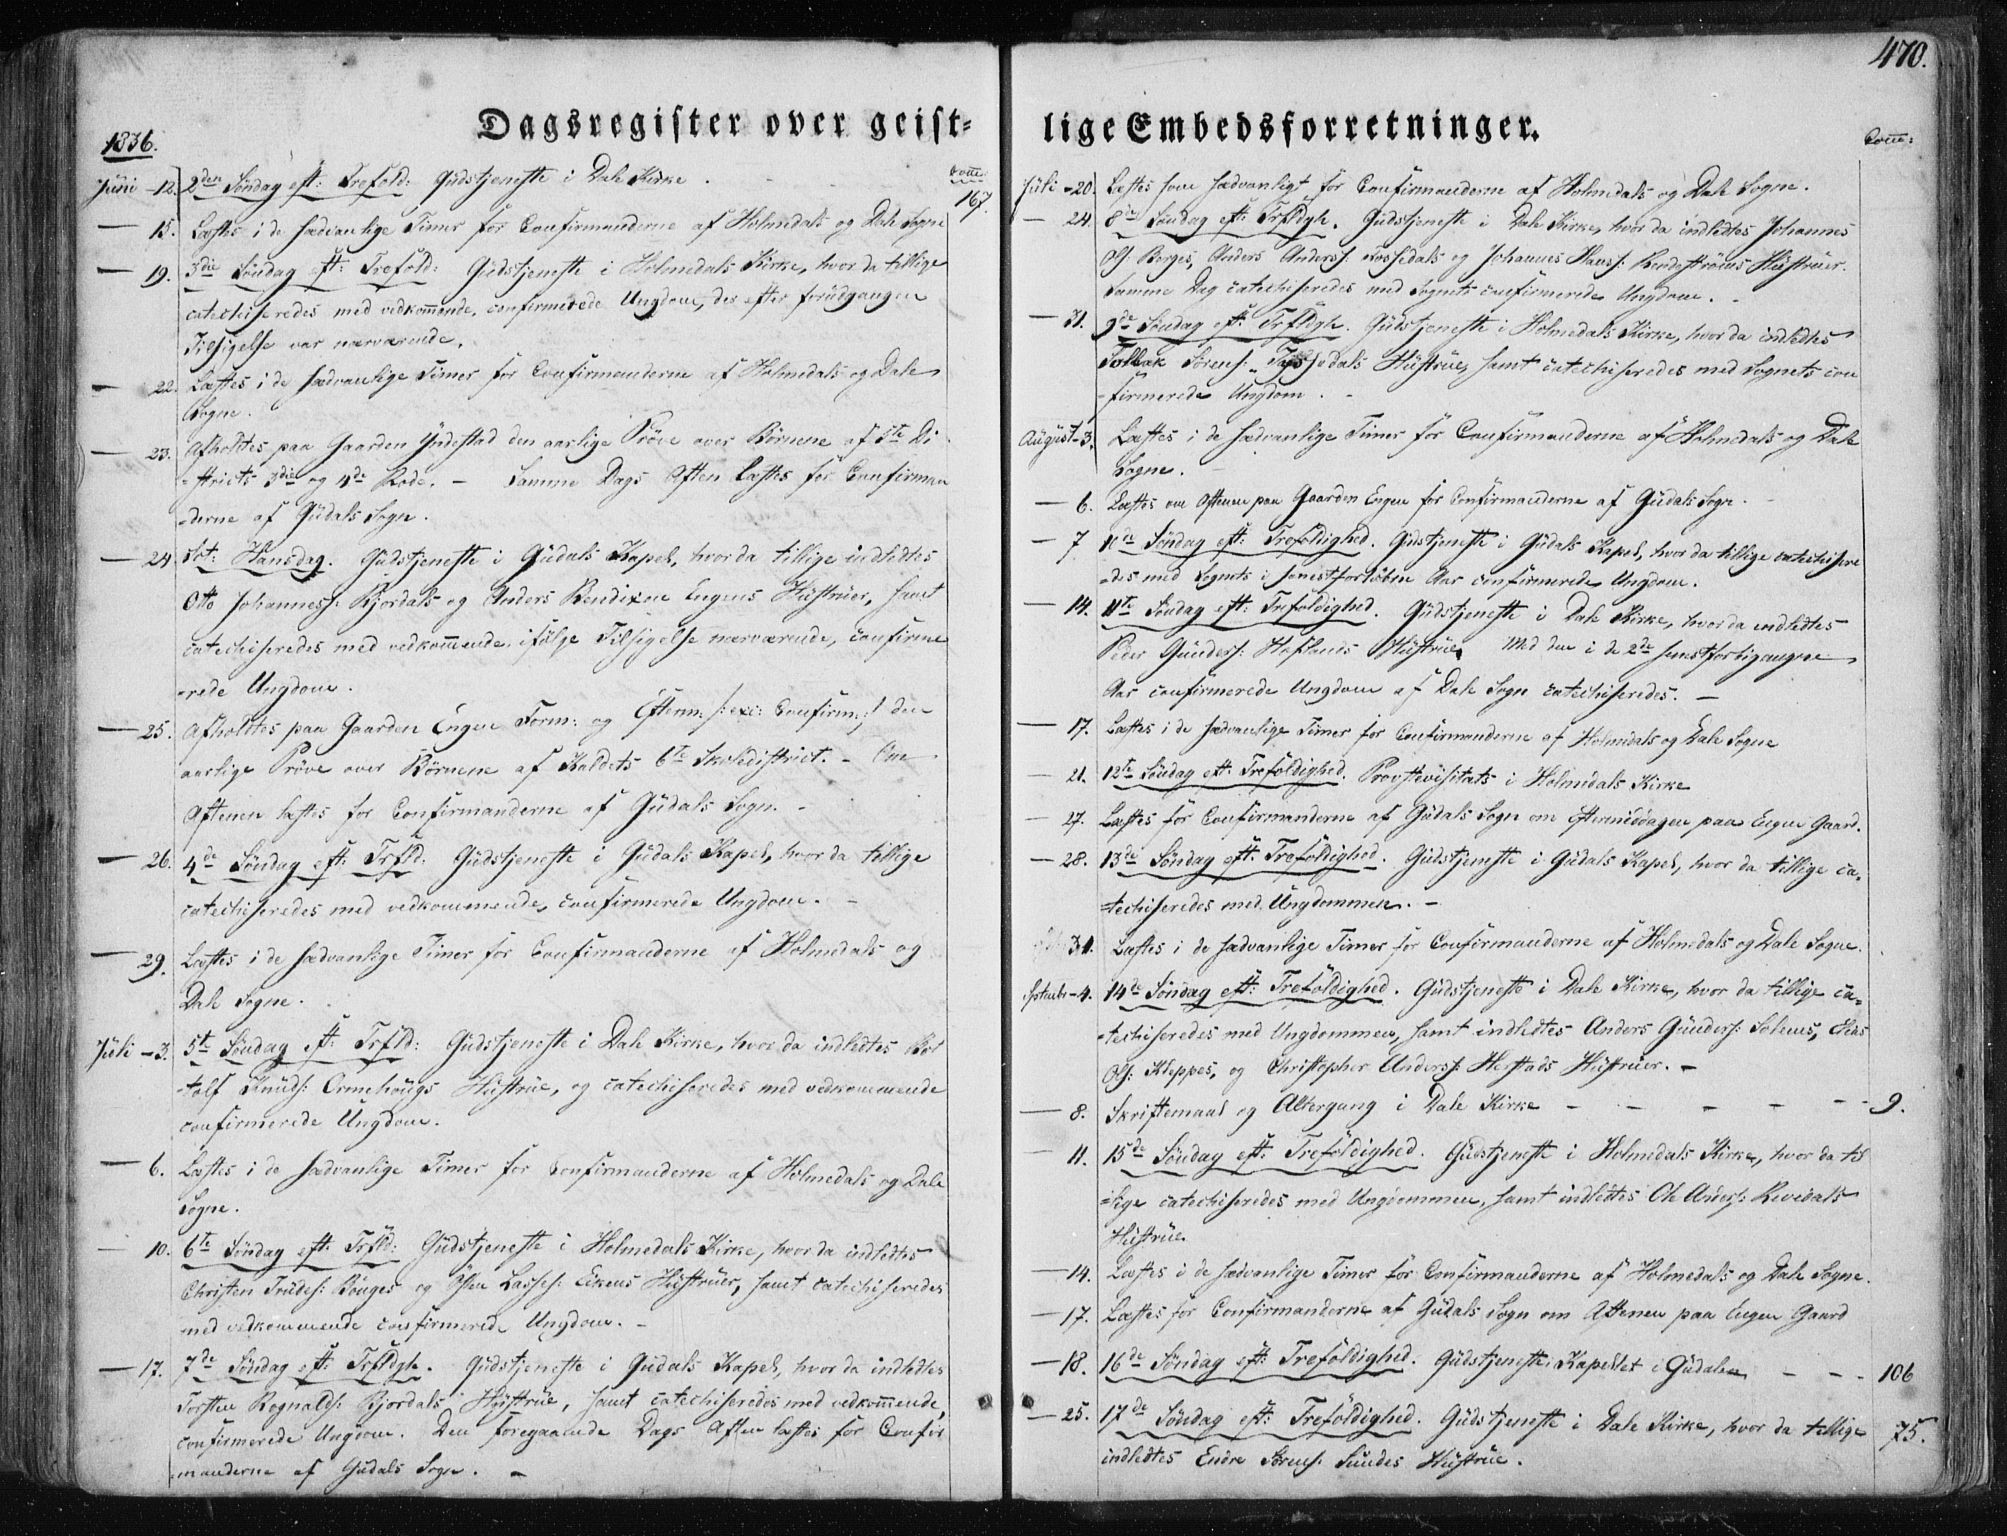 470.
Dagsregister over geist-
lige Embedsforretninger.
1836.
Comm:
Juni - 12. 2den Søndag eft: Trefold: Gudstjeneste i Dale Kirke . - - - 167.
— 15. Læstes i de sædvanlige Timer for Confirmanderne af Holmedals og Dale Sogne
— 19. 3die Søndag eft: Trefold: Gudstjeneste i Holmedals Kirke, hvor da tillige
catechiseredes med vedkommende, confirmerede Ungdom, der efter forudgangen
Tilsigelse var nærværende.
— 22. Læstes i de sædvanlige Timer for Confirmanderne af Holmedals og Dale
Sogne.
— 23. Afholdtes paa Gaarden Yndestad den aarlige Prøve over Børnene af 5te Di
=stricts 3die og 4de Rode. — Samme Dags Aften læstes for Confirman
=derne af Gudals Sogn.
— 24. Sct: Hansdag. Gudstjeneste i Gudals Kapel, hvor da tillige indledtes
Otto Johanness: Kjordals og Anders Bendixen Engens Hustruer, samt
catechiseredes med vedkommende, ifølge Tilsigelse nærværende, confirme
=rede Ungdom.
— 25. Afholdtes paa Gaarden Engen Form: og Efterm: /: exc: Confirm: :/ den
aarlige Prøve over Børnene af Kaldets 6te Skoledistrict. - Om
Aftenen læstes for Confirmanderne af Gudals Sogn. -
— 26. 4de Søndag eft: Trfld: Gudstjeneste i Gudals Kapel, hvor da tillige
catechiseredes med vedkommende, confirmerede Ungdom. -
— 29. Læstes i de sædvanlige Timer for Confirmanderne af Holmedals og
Dale Sogne.
Juli - 3. 5te Søndag eft: Trfld: Gudstjeneste i Dale Kirke, hvor da indledtes Bot
=tolf Knuds: Ornehougs Hustrue, og catechiseredes med vedkommende
confirmerede Ungdom.
— 6. Læstes i de sædvanlige Timer for Confirmanderne af Holmedals og Dale
Sogne.
— 10. 6te Søndag eft: Trfld: Gudstjeneste i Holmedals Kirke, hvor da indledtes
Christen Trudes: Bouges og Lasses: Eikens Hustruer, samt catechiseredes
med vedkommende confirmerede Ungdom. -
— 17. 7de Søndag eft: Trfldgh. Gudstjeneste i Gudals Kapel, hvor da indledtes
Torsten Rognalds: Kjordals Hustrue, samt catechiseredes med vedkommende,
confirmerede Ungdom. Den foregaaende Dags Aften læstes for Confir
=manderne af Gudals Sogn. -
Comm:
Juli - 20. Læstes som sædvanligt for Confirmanderne af Holmedals og Dale Sogne.
— 24. 8de Søndag eft: Trfldgh. Gudstjeneste i Dale Kirke, hvor da indledtes Johannes
Ols: Berges, Anders Anderss: og Johannes Hans: Hustruer.
Samme Dag catechiseredes med Sognets confirmerede Ungdom. -
— 31. 9de Søndag eft: Trfldgh. Gudstjeneste i Holmedals Kirke, hvor da indledtes
Tollak Sørens: Hustrue, samt catechiseredes med Sognets con
=firmerede Ungdom. -
August - 3. Læstes i de sædvanlige Timer for Confirmanderne af Holmedals og Dale
Sogne.
— 6. Læstes om Aftenen paa Gaarden Engen for Confirmanderne af Gudals Sogn.
— 7 10de Søndag eft: Trefoldighed. Gudstjeneste i Gudals Kapel, hvor da tillige catechisere
=des med Sognets i senestforløbne Aar confirmerede Ungdom.
— 14. 11te Søndag eft: Trefoldighed. Gudstjeneste i Dale Kirke, hvor da indledtes
Peder Gunders: Haflands Hustrue. Med den i de 2de senestforbigangne
Aar confirmerede Ungdom af Dale Sogn catechiseredes. -
— 17. Læstes i de sædvanlige Timer for Confirmanderne af Holmedals og Dale Sogne
— 21. 12te Søndag eft: Trefoldighed. Provstevisitats i Holmedals Kirke
— 27. Læstes for Confirmanderne af Gudals Sogn om Eftermiddagen paa Engen Gaard.
— 28. 13de Søndag eft: Trefoldighed. Gudstjeneste i Gudals Kapel, hvor da tillige ca=
=techiseredes med Ungdommen. -
31. Læstes i de sædvanlige Timer for Confirmanderne af Holmedals og Dale Sogne.
Septembr - 4. 14de Søndag eft: Trefoldighed. Gudstjeneste i Dale Kirke, hvor da tillige ca=
=techiseredes med Ungdommen, samt indledtes Anders Gunders: Solems,
Ols: Kleppes, og Christopher Anderss: Herstads Hustruer. -
— 8. Skriftemaal og Altergang i Dale Kirke - - - - - 9.
— 11. 15de Søndag eft: Trefoldighed. Gudstjeneste i Holmedals Kirke, hvor da til
=lige catechiseredes med Ungdommen, samt indledtes Ole Anders: Revidals
Hustrue
— 14. Læstes i de sædvanlige Timer for Confirmanderne af Holmedals og Dale Sogne.
— 17. Læstes for Confirmanderne af Gudals Sogn om Aftenen paa Engen Gaard
— 18. 16de Søndag eft: Trefoldighed. Gudstjeneste i Kapellet i Gudalen - - - 106
— 25. 17de Søndag eft: Trefoldighed. Gudstjeneste i Dale Kirke, hvor da tillige 75.
indledtes Endre Sørens: Sundes Hustrue.